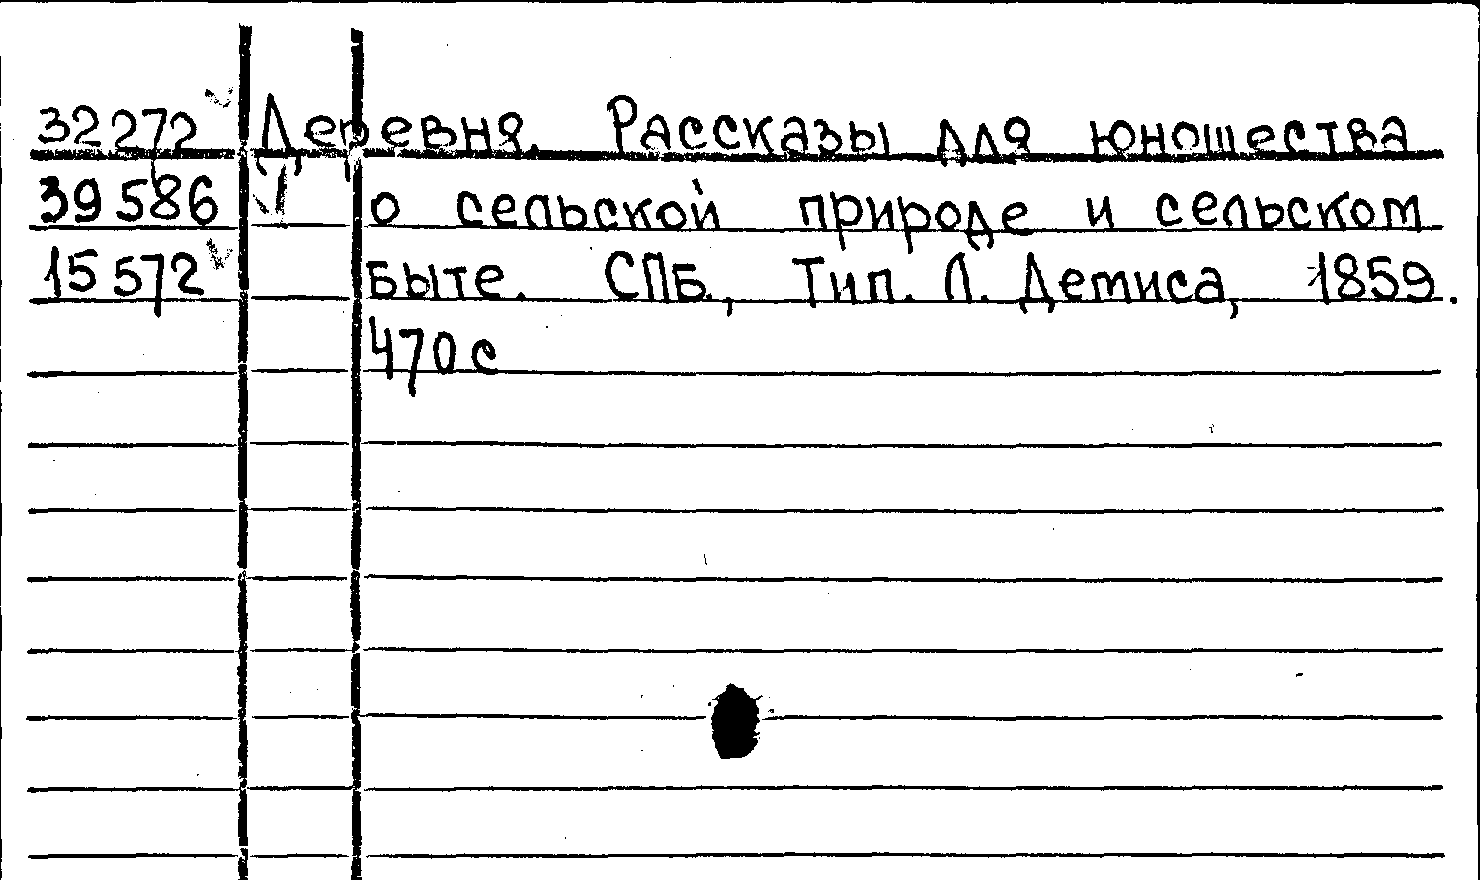 32272 Деревня. Рассказы для юношества
39586 о сельской природе и сельском
15572 быте. СПБ., Тип. Л. Демиса, 1859.
470 с